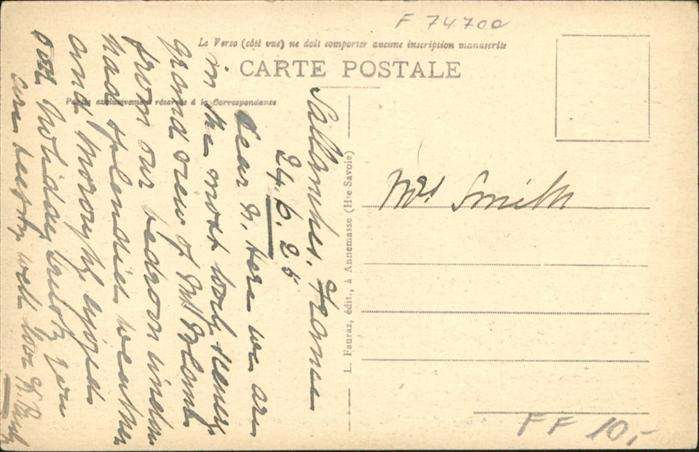 F 74700
Le Verso (côté vue) ne doit comporter aucune inscription manuscrite
CARTE POSTALE
Partie exclusivement réservée à la Correspondance
Sallanches. France
24.6.25
Dear G. here we are
in the most lovely scenery
grand view of Mt Blanc
from our bedroom window
had splendid weather
and thoroughly enjoyed
our holiday trusting you
are keeping well love
Mrs Smith
L. Fauraz, édit., à Annemasse (Hte Savoie)
FF 10,-